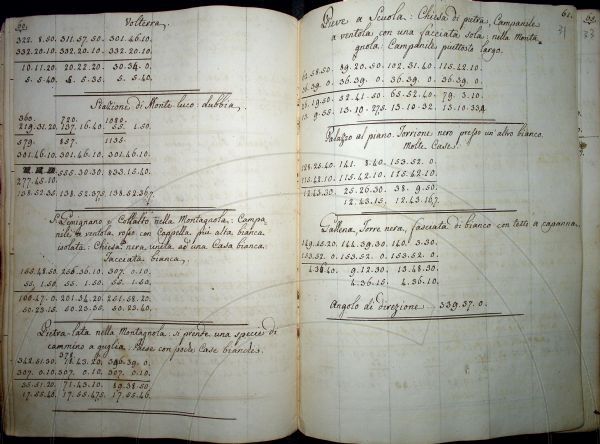 Volterra.
322. 8.50. 311.57.50. 301.46.10.
332.20.10. 332.20.10. 332.20.10.
10.11.20 20.22.20 30.34.0
5. 5.40. 5. 5.35. 5. 5.40.
Stazione di Monte luco: dubbia,
360. 720. 1080.
219.31.20. 137.16.40. 55. 1.50.
579. 857. 1135.
301.46.10. 301.46.10. 301.46.10.
277.45.10. 555.30.30. 833.15.40.
138.52.35. 138.52.37.5. 138.52.36.7.
S. Gemignano e Collalto nella Montagnola: Campa-
nile a ventola rosso con Cappella più alta bianca
isolata: Chiesa nera unita ad una Casa bianca:
Facciata bianca,
155.48.50. 256.36.10. 307. 0.10.
55. 1.50. 55. 1.50. 55. 1.50.
100.47.0. 201.34.20. 251.58.20.
50.23.15. 50.23.35. 50.23.40.
Pietra-lata nella Montagnola: si prende una specie di
cammino a guglia: Paese con poche Case bianche.
378
342.51.30. 18.43.20. 396.39.0.
307. 0.10. 307. 0.10. 307. 0.10.
35.51.20. 71.43.10. 89.38.50.
17.55.40. 17.55.47.5. 17.55.46.
61.
31
Pieve a Scuola: Chiesa di pietra, Campanile
a ventola, con una facciata sola; nella Monta-
gnola: Campanile piuttosto largo.
62.58.50. 89.20.50. 102.31.40. 115.42.10.
36.39.0. 36.39.0. 36.39.0. 36.39.0.
26.19.50. 52.41.50. 65.52.40. 79. 3.10.
13. 9.55. 13.10.27.5. 13.10.32. 13.10.
Palazzo al piano. Torrione nero presso un'altro bianco.
Molte Case.
128.25.40. 141. 8.40. 153.52. 0.
115.42.10. 115.42.10. 115.42.10.
12.43.30. 25.26.30. 38. 9.50.
12.43.15. 12.43.16.7.
Torre nera, fasciata di bianco con tetto a capanna.
149.15.20. 144.39.30. 140. 3.30.
153.52.0. 153.52.0. 153.52.0.
4.36.40. 9.12.30. 13.48.30.
4.36.15. 4.36.10.
Angolo di direzione .... 339.37. 0.
33